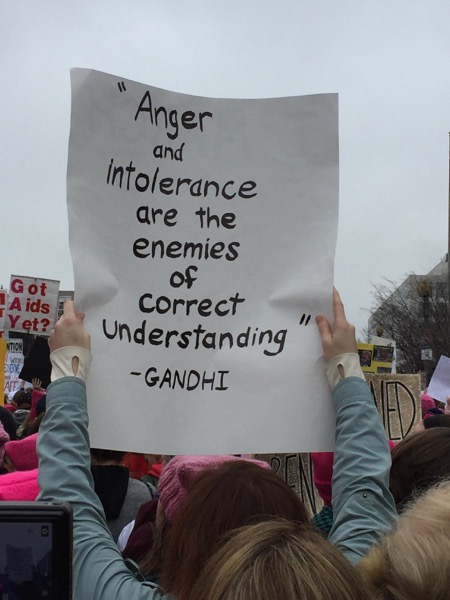 "Anger
and
intolerance
are the
enemies
of
correct
understanding"
-GANDHI
Got
Aids
Yet?